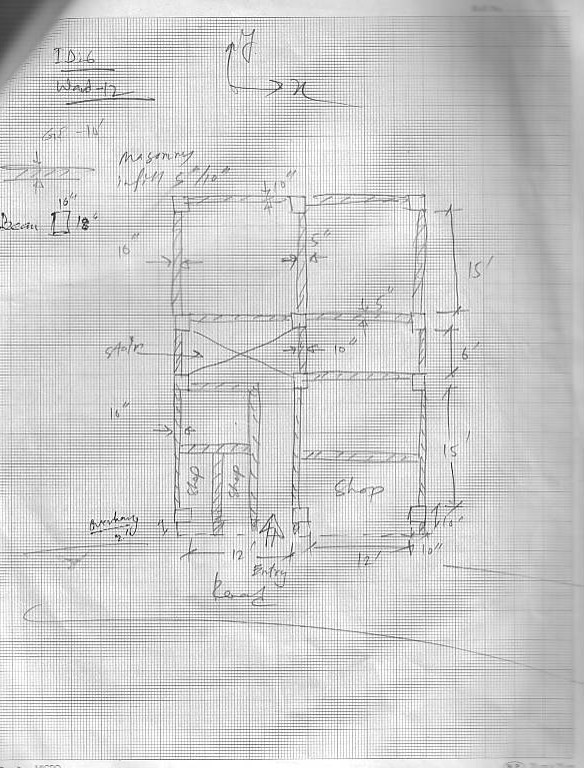 ID:6
Ward-12
y
x
GF -10'
Masonry
infill 5"/10"
10"
10"
Beam 18"
10"
5"
15'
5"
Stair
10"
6'
10"
15'
Shop
Shop
Shop
Overhang
10"
12'
12'
10"
Entry
Road